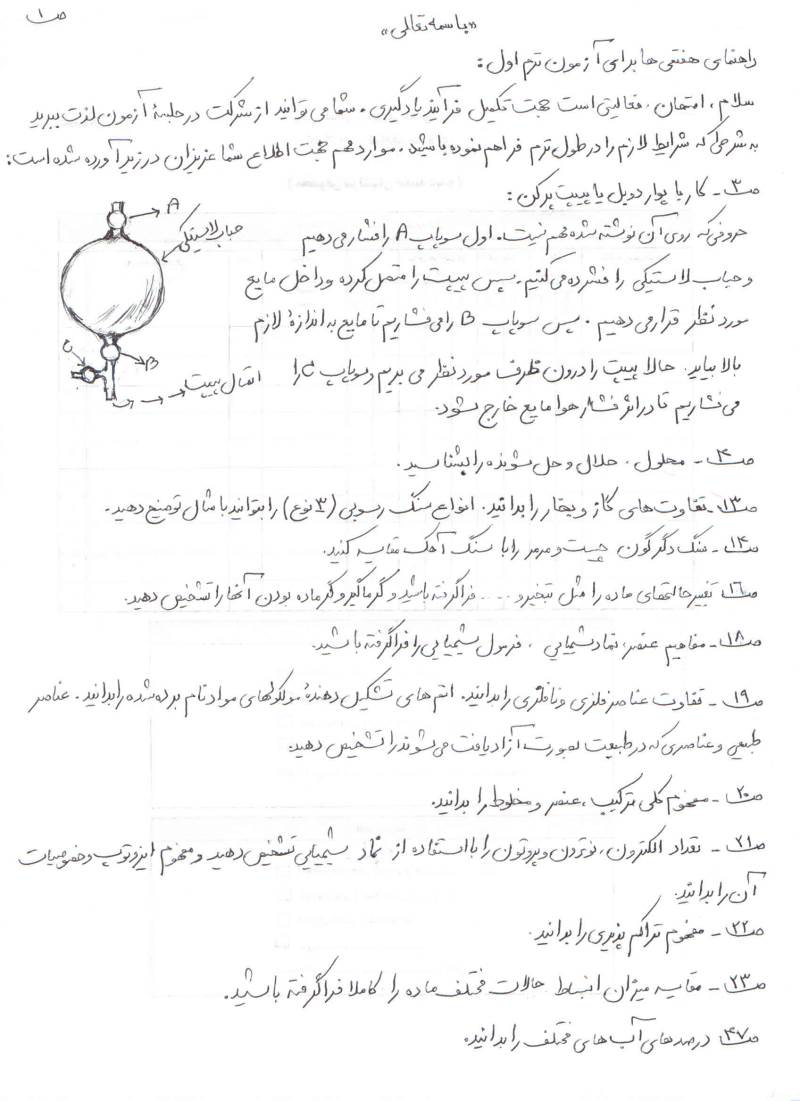 ص ۱
«باسمه تعالی»
راهنمای هفتمی ها برای آزمون ترم اول:
سلام، امتحان، فعالیتی است جهت تکمیل فرآیند یادگیری. شما می توانید از شرکت در جلسهٔ آزمون لذت ببرید
به شرطی که شرایط لازم را در طول ترم فراهم نموده باشید. موارد مهم جهت اطلاع شما عزیزان در زیر آورده شده است:
ص۳ - کار با پوار دوبل یا پیپت پرکن:
حروفی که روی آن نوشته شده مهم نیست. اول سوپاپ A را فشار می دهیم
و حباب لاستیکی را فشرده می کنیم. سپس پیپت را متصل کرده و داخل مایع
مورد نظر قرار می دهیم. سپس سوپاپ B را می فشاریم تا مایع به اندازهٔ لازم
بالا بیاید. حالا پیپت را درون ظرف مورد نظر می بریم و سوپاپ C را
می فشاریم تا در اثر فشار هوا مایع خارج شود.
A
حباب لاستیکی
C
B
اتصال پیپت
ص۴ - محلول، حلال و حل شونده را بشناسید.
ص۱۳ - تفاوت های گاز و بخار را بدانید. انواع سنگ رسوبی (۳ نوع) را بتوانید با مثال توضیح دهید.
ص۱۴ - سنگ دگرگون چیست و مرمر را با سنگ آهک مقایسه کنید.
ص۱۶ تغییر حالتهای ماده را مثل تبخیر و .... فرا گرفته باشید و گرماگیر و گرماده بودن آنها را تشخیص دهید.
ص۱۸ - مفاهیم عنصر، نماد شیمیایی، فرمول شیمیایی را فرا گرفته باشید.
ص۱۹ - تفاوت عناصر فلزی و نافلزی را بدانید. اتم های تشکیل دهندهٔ مولکولهای مواد نام برده شده را بدانید. عناصر
طبیعی و عناصری که در طبیعت بصورت آزاد یافت می شوند را تشخیص دهید.
ص۲۰ - مفهوم کلی ترکیب، عنصر و مخلوط را بدانید.
ص۲۱ - تعداد الکترون، نوترون و پروتون را با استفاده از نماد شیمیایی تشخیص دهید و مفهوم ایزوتوپ و خصوصیات
آن را بدانید.
ص۲۲ - مفهوم تراکم پذیری را بدانید.
ص۲۳ - مقایسه میزان انبساط حالات مختلف ماده را کاملا فرا گرفته باشید.
ص۴۷ درصدهای آب های مختلف را بدانید.